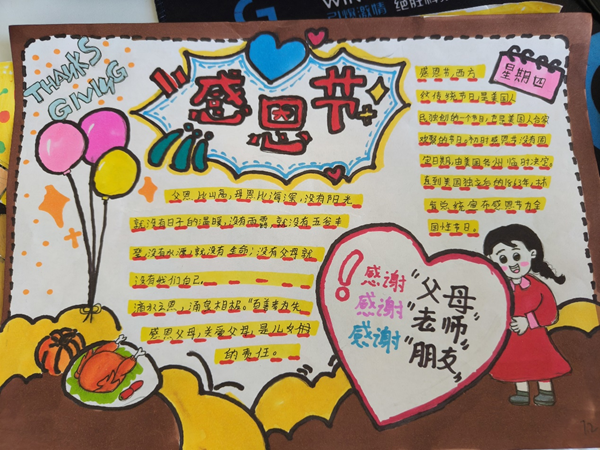 THANKS
GIVING
感恩节
星期四
感恩节,西方
传统节日,是美国人
民独创的一个节日,也是美国人合家
欢聚的节日,初时感恩节没有固
定日期,由美国各州临时决定,
直到美国独立后的1863年,林
肯总统宣布感恩节为全
国性节日。
父恩比山高,母恩比海深,没有阳光
就没有日子的温暖,没有雨露,就没有五谷丰
登,没有水源,就没有生命;没有父母,就
没有我们自己,
滴水之恩,涌泉相报。"百善孝为先
感恩父母,关爱父母,是儿女们
的责任。
感谢"父母"
感谢"老师"
感谢"朋友"